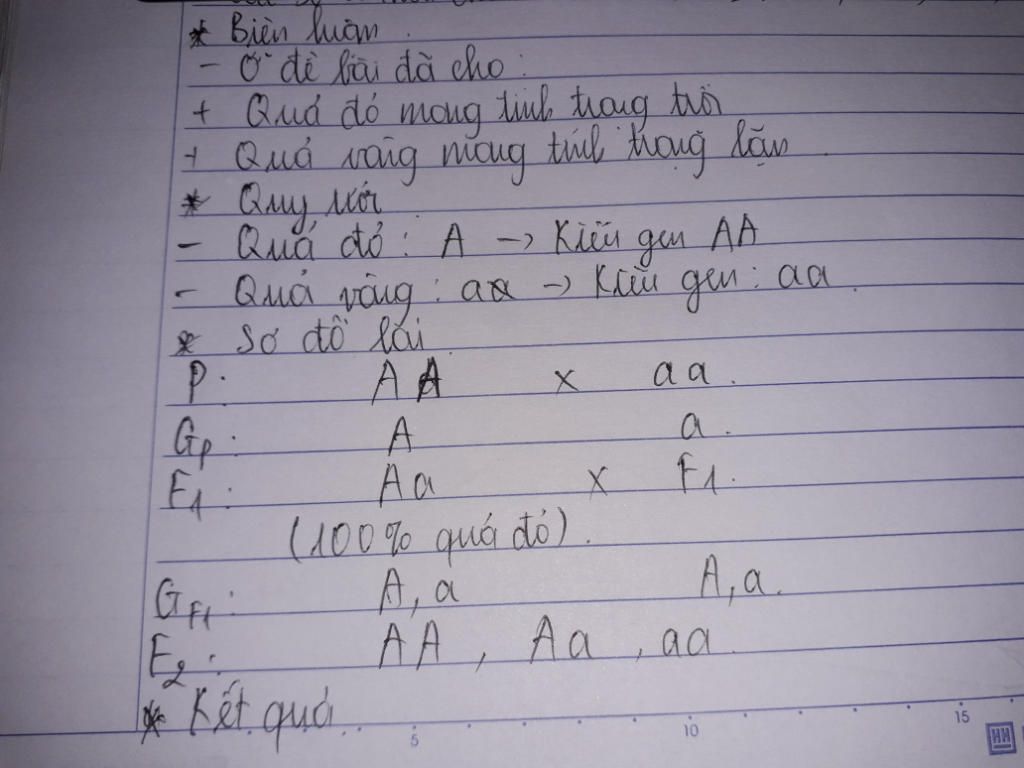 * Biện luận.
- Ở đề bài đã cho:
+ Quả đỏ mang tính trạng trội
+ Quả vàng mang tính trạng lặn.
* Quy ước
- Quả đỏ: A -> Kiểu gen AA
- Quả vàng: aa -> Kiểu gen: aa.
* Sơ đồ lai
P: AA x aa.
Gp: A a.
F1: Aa x F1.
(100% quả đỏ).
GF1: A, a A, a.
F2: AA, Aa, aa
* Kết quả
5 10 15
HH